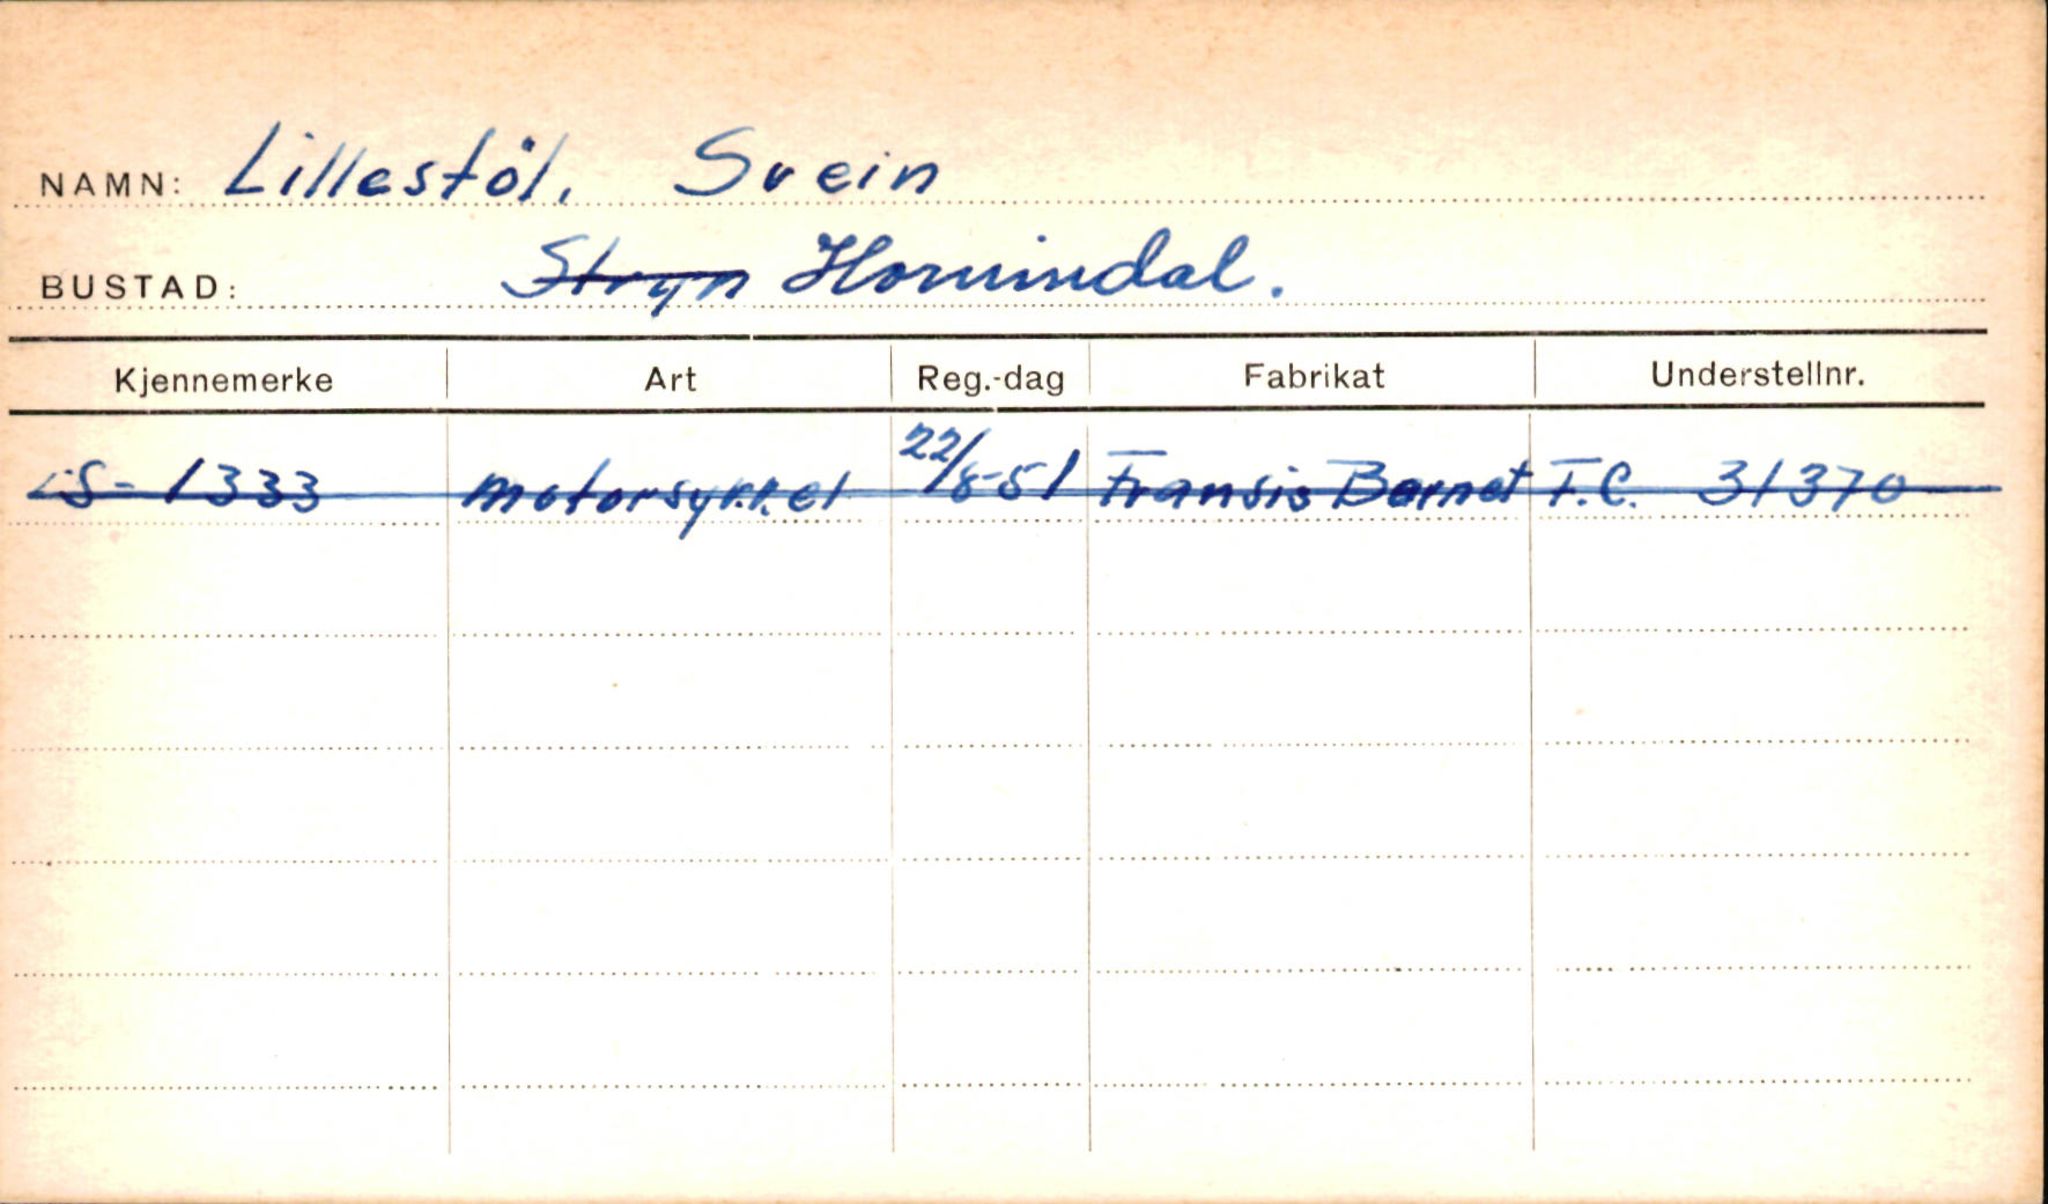 NAMN: Lillestöl, Svein
BUSTAD: Stryn Hornindal.
Kjennemerke Art Reg.-dag Fabrikat Understellnr.
S-1333 motorsykkel 22/8-51 Fransis Barnet F.C. 31370